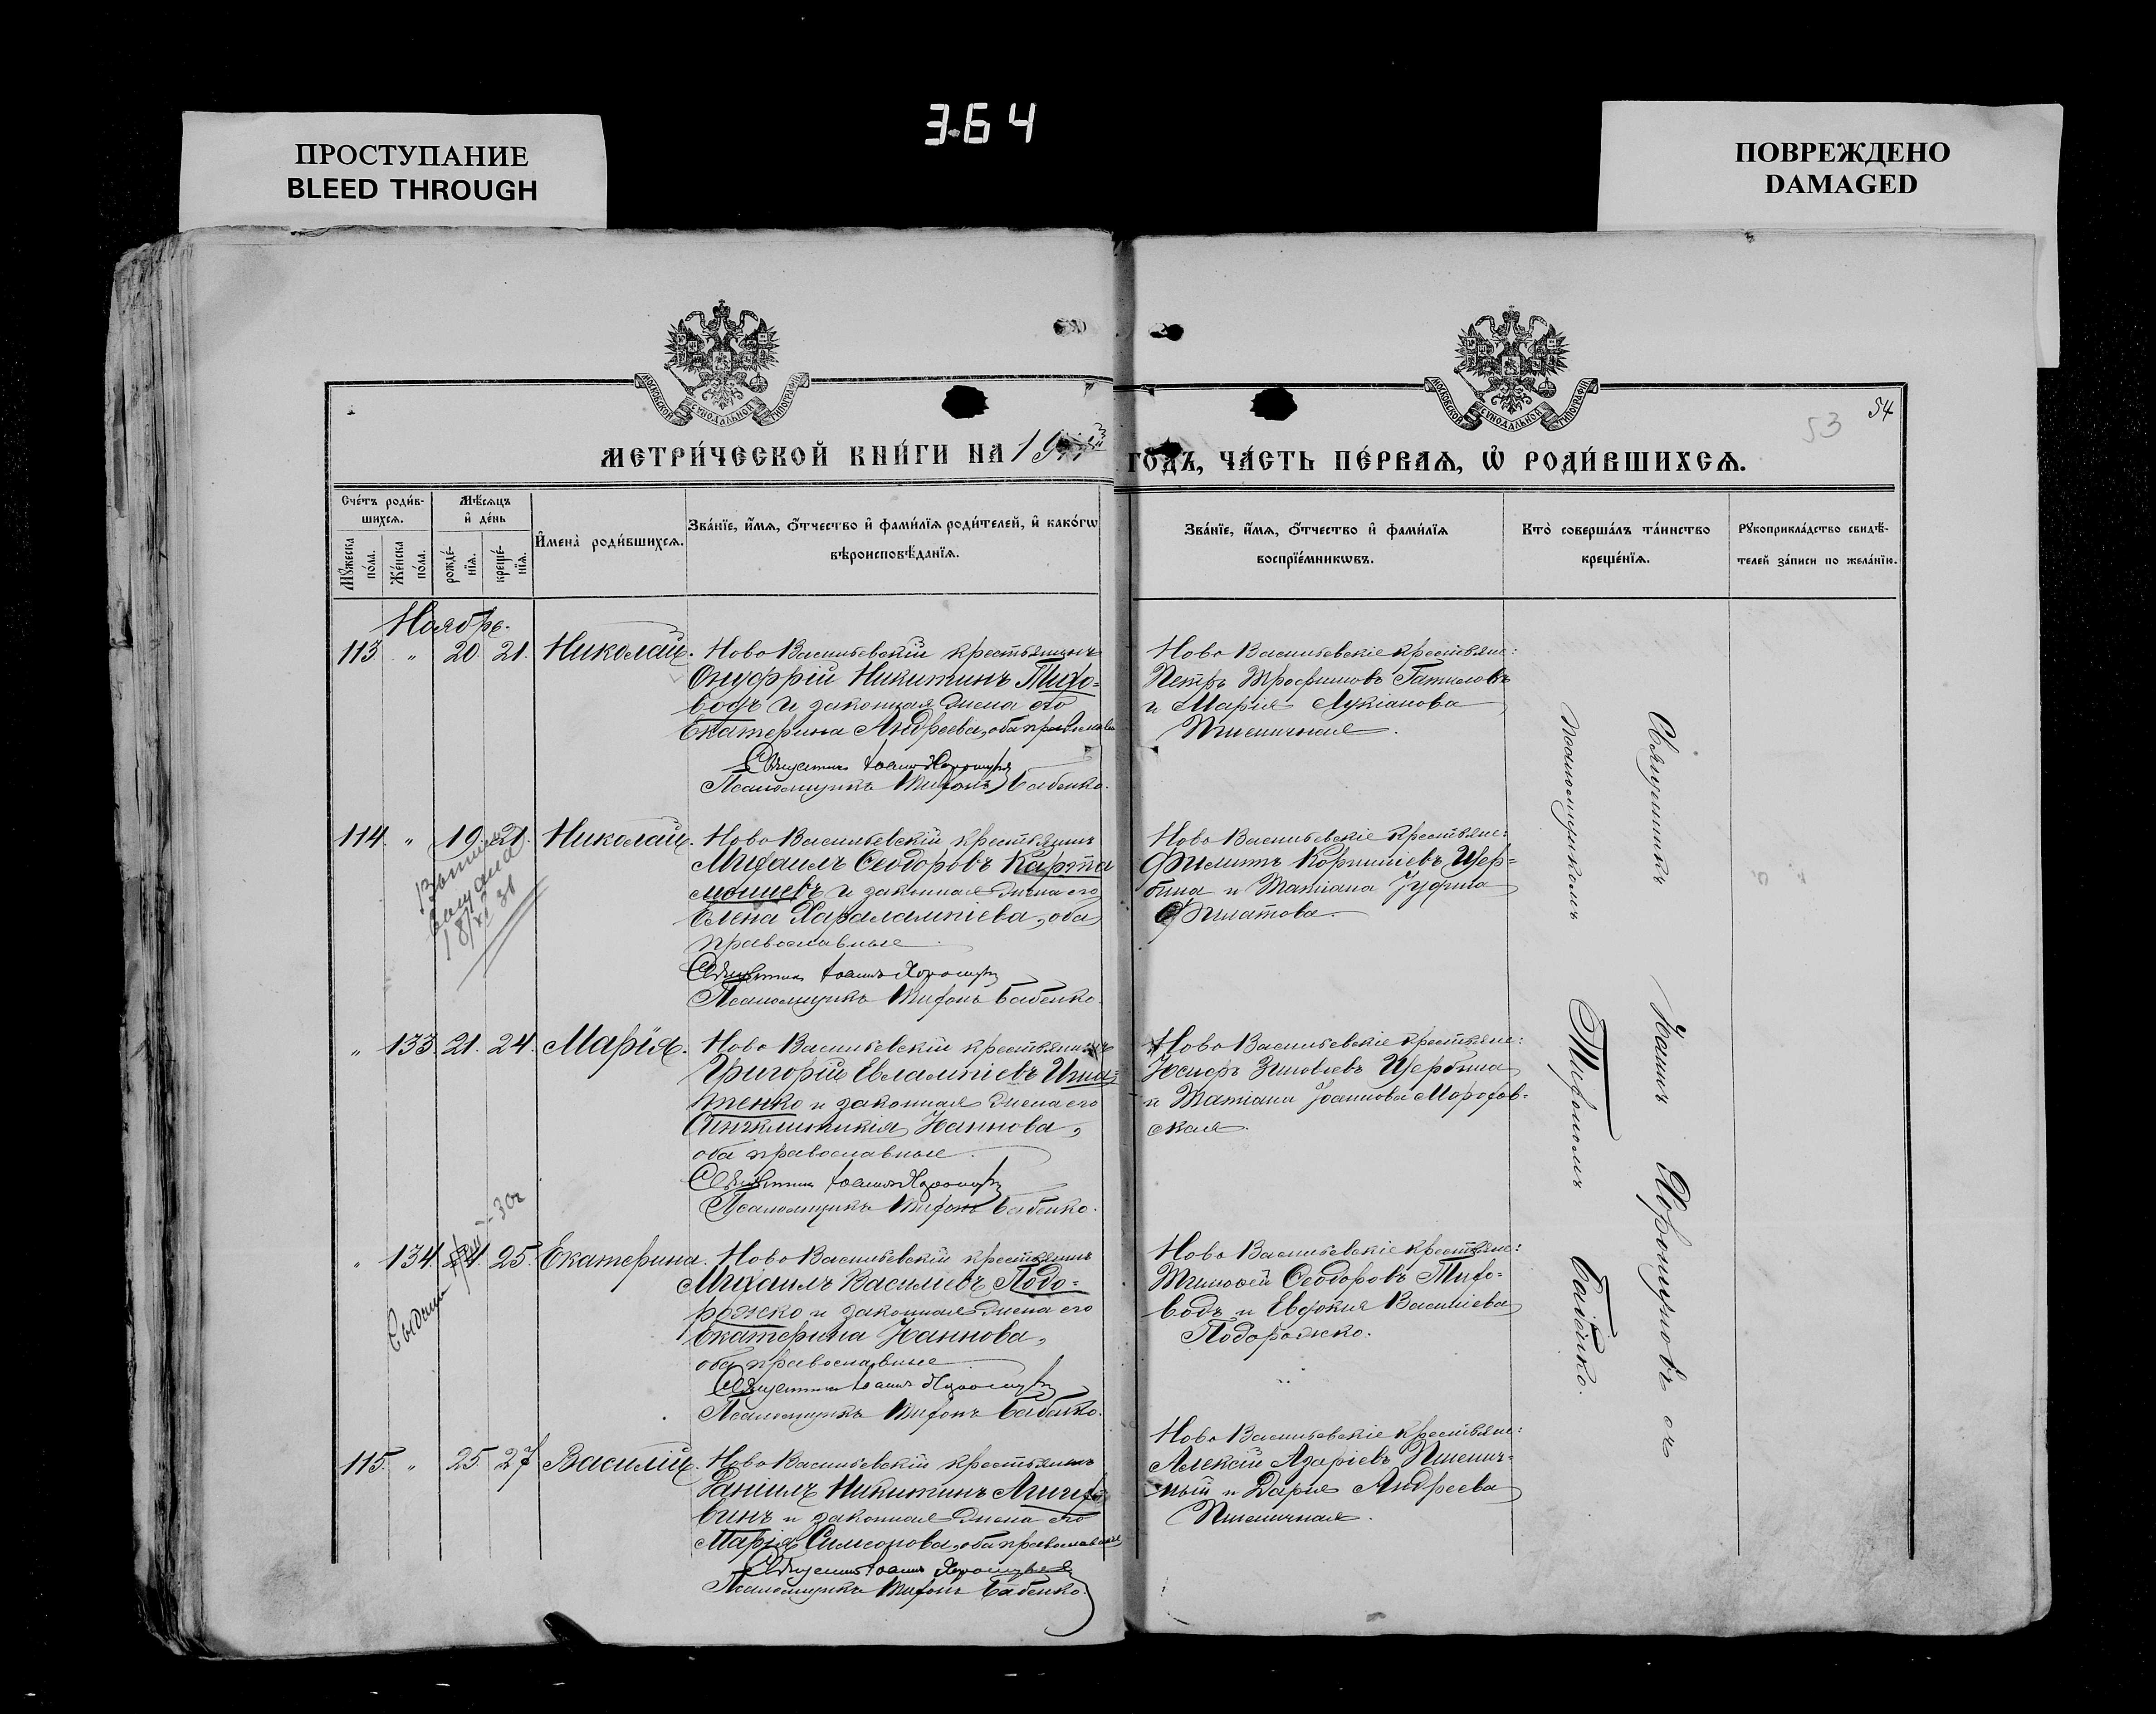 364
ПРОСТУПАНИЕ
BLEED THROUGH
ПОВРЕЖДЕНО
DAMAGED
МОСКОВСКОЙ СѴНОДАЛЬНОЙ ТИПОГРАФІИ
МОСКОВСКОЙ СѴНОДАЛЬНОЙ ТИПОГРАФІИ
53
54
МЕТРИ́ЧЕСКОЙ КНИ́ГИ НА 19
ГО́ДЪ, ЧА́СТЬ ПЕ́РВАѦ, Ѡ҆ РОДИ́ВШИХСѦ.
Сче́тъ роди́в-
шихсѧ.
Мѣ́сѧцъ
и҆ де́нь
Мꙋ́жеска
по́ла.
Же́нска
по́ла.
рожде́-
нїѧ.
креще́-
нїѧ.
И҆мена̀ роди́вшихсѧ.
Зва́нїе, и҆́мѧ, ѻ҆́тчество и҆ фами́лїѧ роди́телей, и҆ како́гѡ
вѣроисповѣ́данїѧ.
Зва́нїе, и҆́мѧ, ѻ҆́тчество и҆ фами́лїѧ
воспрїе́мникѡвъ.
Кто̀ соверша́лъ та́инство
креще́нїѧ.
Рꙋкоприкла́дство свидѣ́-
телей за́писи по жела́нїю.
Ноябрь.
113. " 20. 21. Николай. Ново Васильевскій крестьянинъ
Онуфрій Никитинъ Тихо-
водъ и законная жена его
Екатерина Андреева, оба православные
Священникъ Іоаннъ Хорошуновъ
Псаломщикъ Тифонъ Бабенко.
Ново Васильевскіе крестьяне:
Петръ Трофимовъ Гатиловъ
и Марія Лукіанова
Пшеничная.
114. " 19. 21. Николай. Ново Васильевскій крестьянинъ
Михаилъ Ѳеодоровъ Карта
мышевъ и законная жена его
Елена Харалампіева, оба
православные
Священникъ Іоаннъ Хорошуновъ
Псаломщикъ Тифонъ Бабенко.
18/XI 38
Ново Васильевскіе крестьяне:
Филиппъ Корниліевъ Щер-
бина и Татіана Іудина
Филатова.
" 133. 21. 24. Марія. Ново Васильевскій крестьянинъ
Григорій Евлампіевъ Игна-
тенко и законная жена его
Сигклитикія Іоаннова,
оба православные
Священникъ Іоаннъ Хорошуновъ
Псаломщикъ Тифонъ Бабенко.
Ново Васильевскіе крестьяне:
Іосифъ Зиновіевъ Щербина
и Татіана Іоаннова Морозов-
ская.
" 134. 24. 25. Екатерина. Ново Васильевскій крестьянинъ
Михаилъ Василіевъ Подо-
рожко и законная жена его
Екатерина Іоаннова,
оба православные
Священникъ Іоаннъ Хорошуновъ
Псаломщикъ Тифонъ Бабенко.
Ново Васильевскіе крестьяне:
Тимоѳей Ѳеодоровъ Тихо-
водъ и Евдокія Василіева
Подорожко.
115. " 25 27 Василій. Ново Васильевскій крестьянинъ
Даніилъ Никитинъ
винъ и законная жена его
Марія Симеонова, оба православные
Священникъ Іоаннъ Хорошуновъ
Псаломщикъ Тифонъ Бабенко.
Ново Васильевскіе крестьяне:
Алексій Азаріевъ Пшенич-
ный и Дарія Андреева
Пшеничная.
Священникъ Іоаннъ Хорошуновъ съ
псаломщикомъ Тифономъ Бабенко.